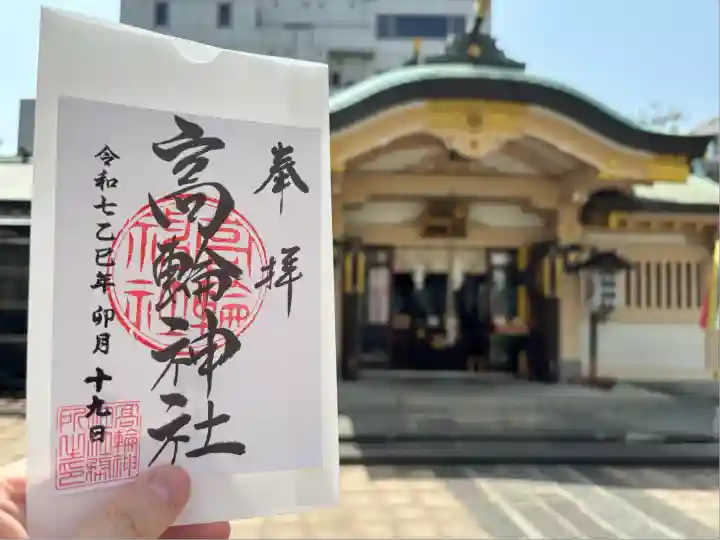 奉拝
高輪神社
令和七乙巳年卯月十九日
高輪神社
髙輪神
社社務
所之印